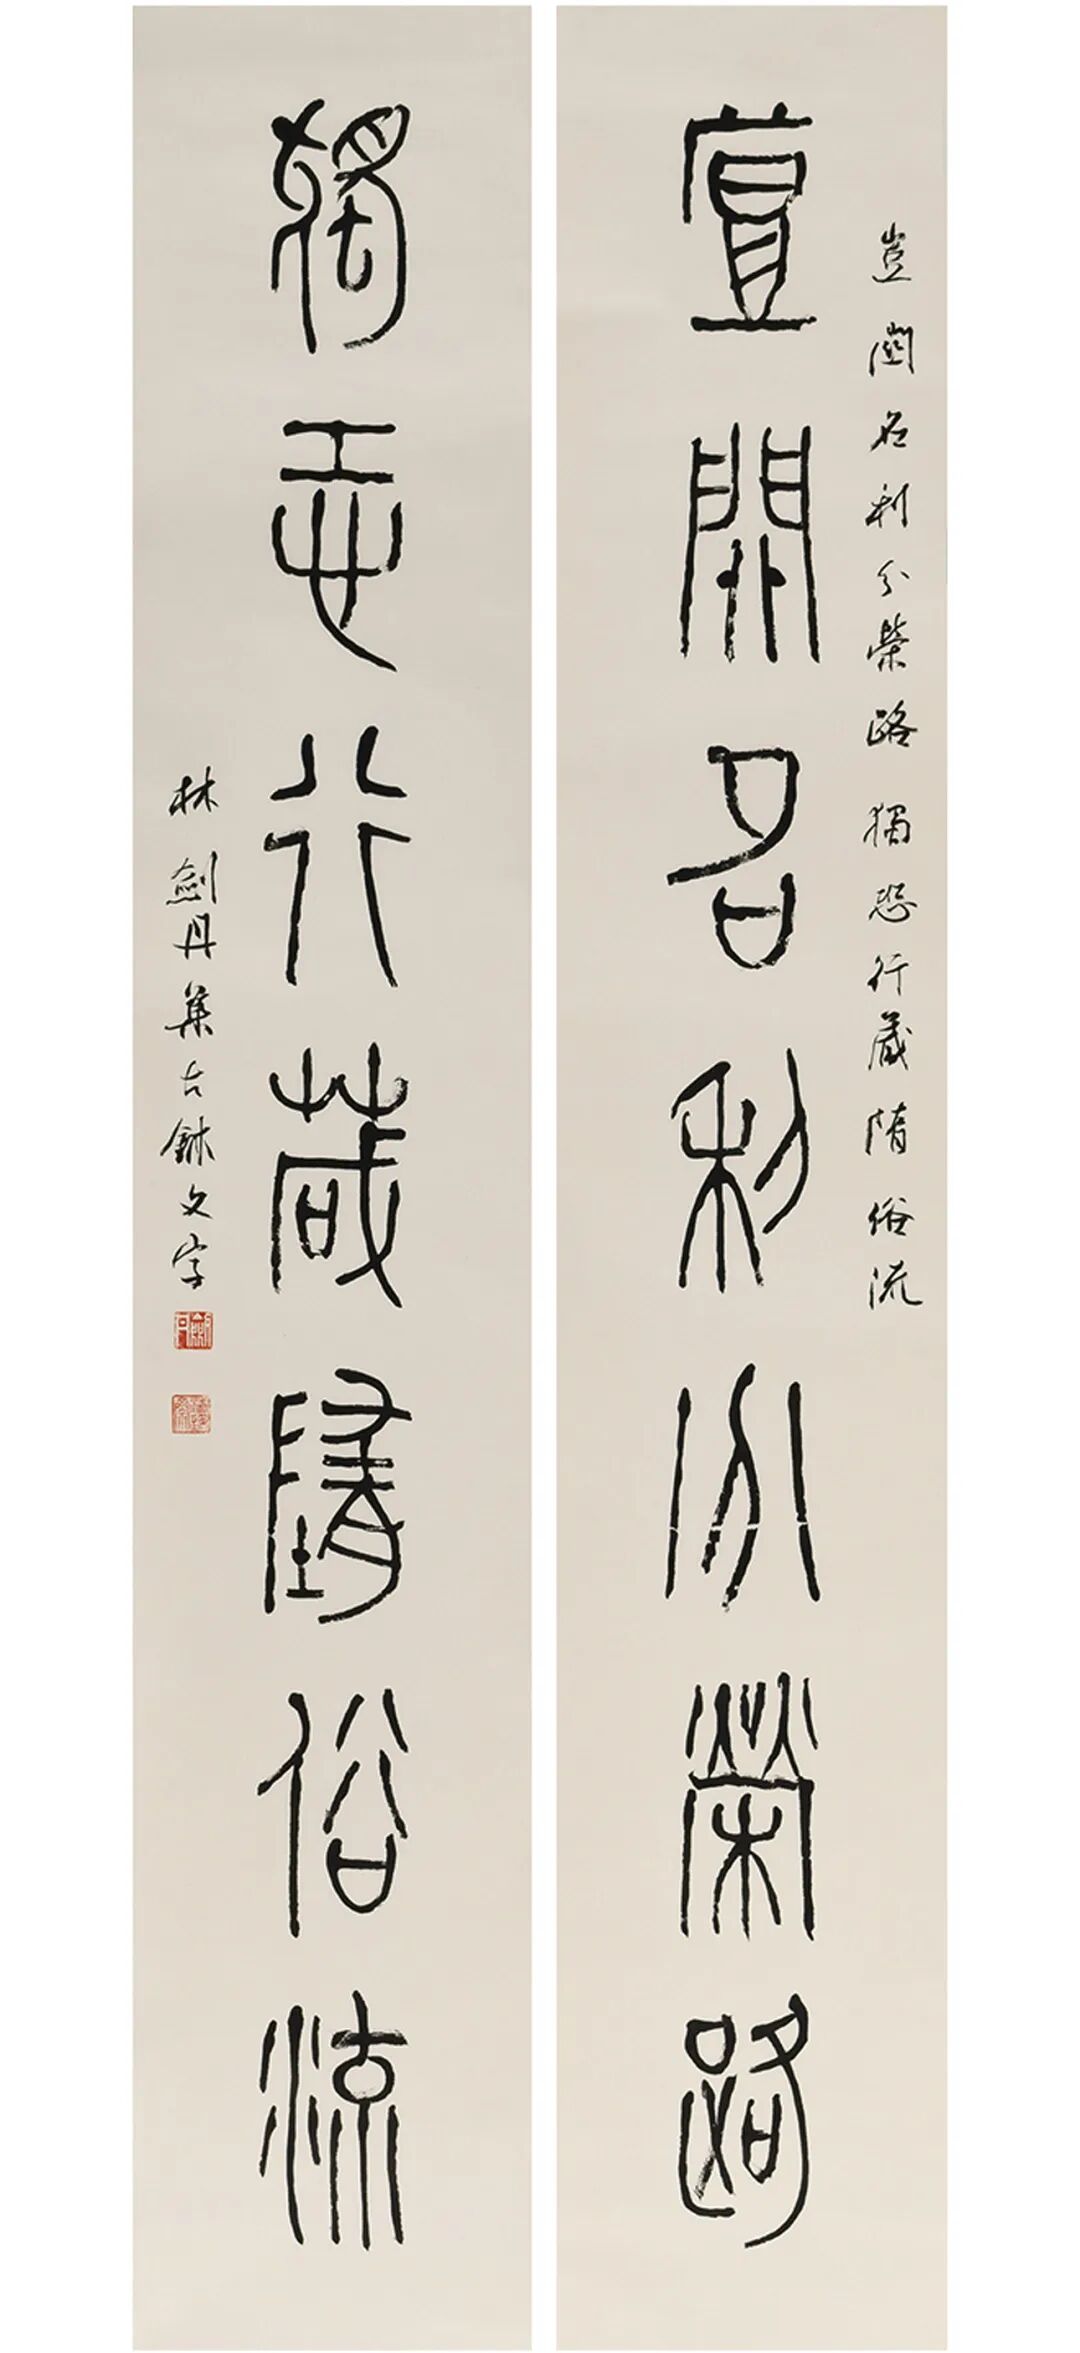 豈關名利分榮路 獨恐行藏隋俗流
豈關名利分榮路
獨恐行藏墮俗流
林劍丹集古鉥文字